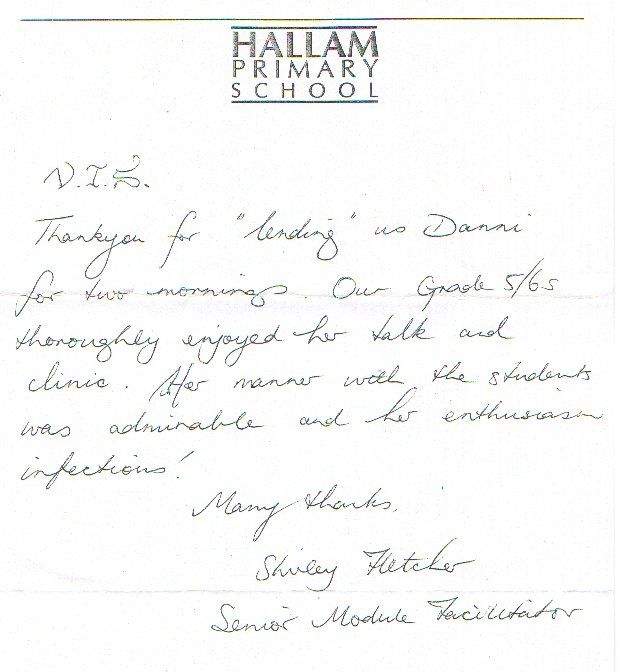 HALLAM
PRIMARY
SCHOOL
V.I.S.
Thankyou for "lending" us Danni
for two mornings. Our Grade 5/6s
thoroughly enjoyed her talk and
clinic. Her manner with the students
was admirable and her enthusiasm
infectious!
Many thanks,
Shirley Fletcher
Senior Module Facilitator